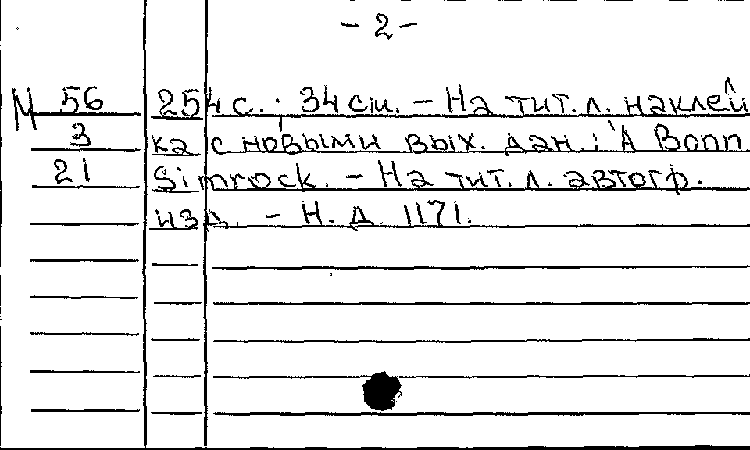 - 2 -
М 56 254 с. ; 34 см. - На тит. л. наклей
3 ка с новыми вых. дан.: A Bonn
21 Simrock. - На тит. л. автогр.
изд. - Н. д. 1171.